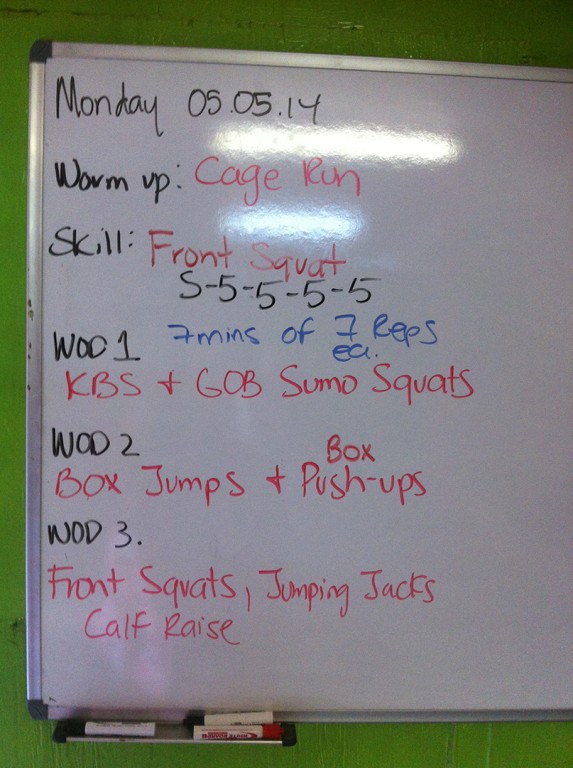 Monday 05.05.14
Warm up: Cage Run
Skill: Front Squat
5-5-5-5-5
WOD 1 7mins of 7 Reps
ea.
KBS + GOB Sumo Squats
WOD 2
Box
Box Jumps + Push-ups
WOD 3.
Front Squats, Jumping Jacks
Calf Raise